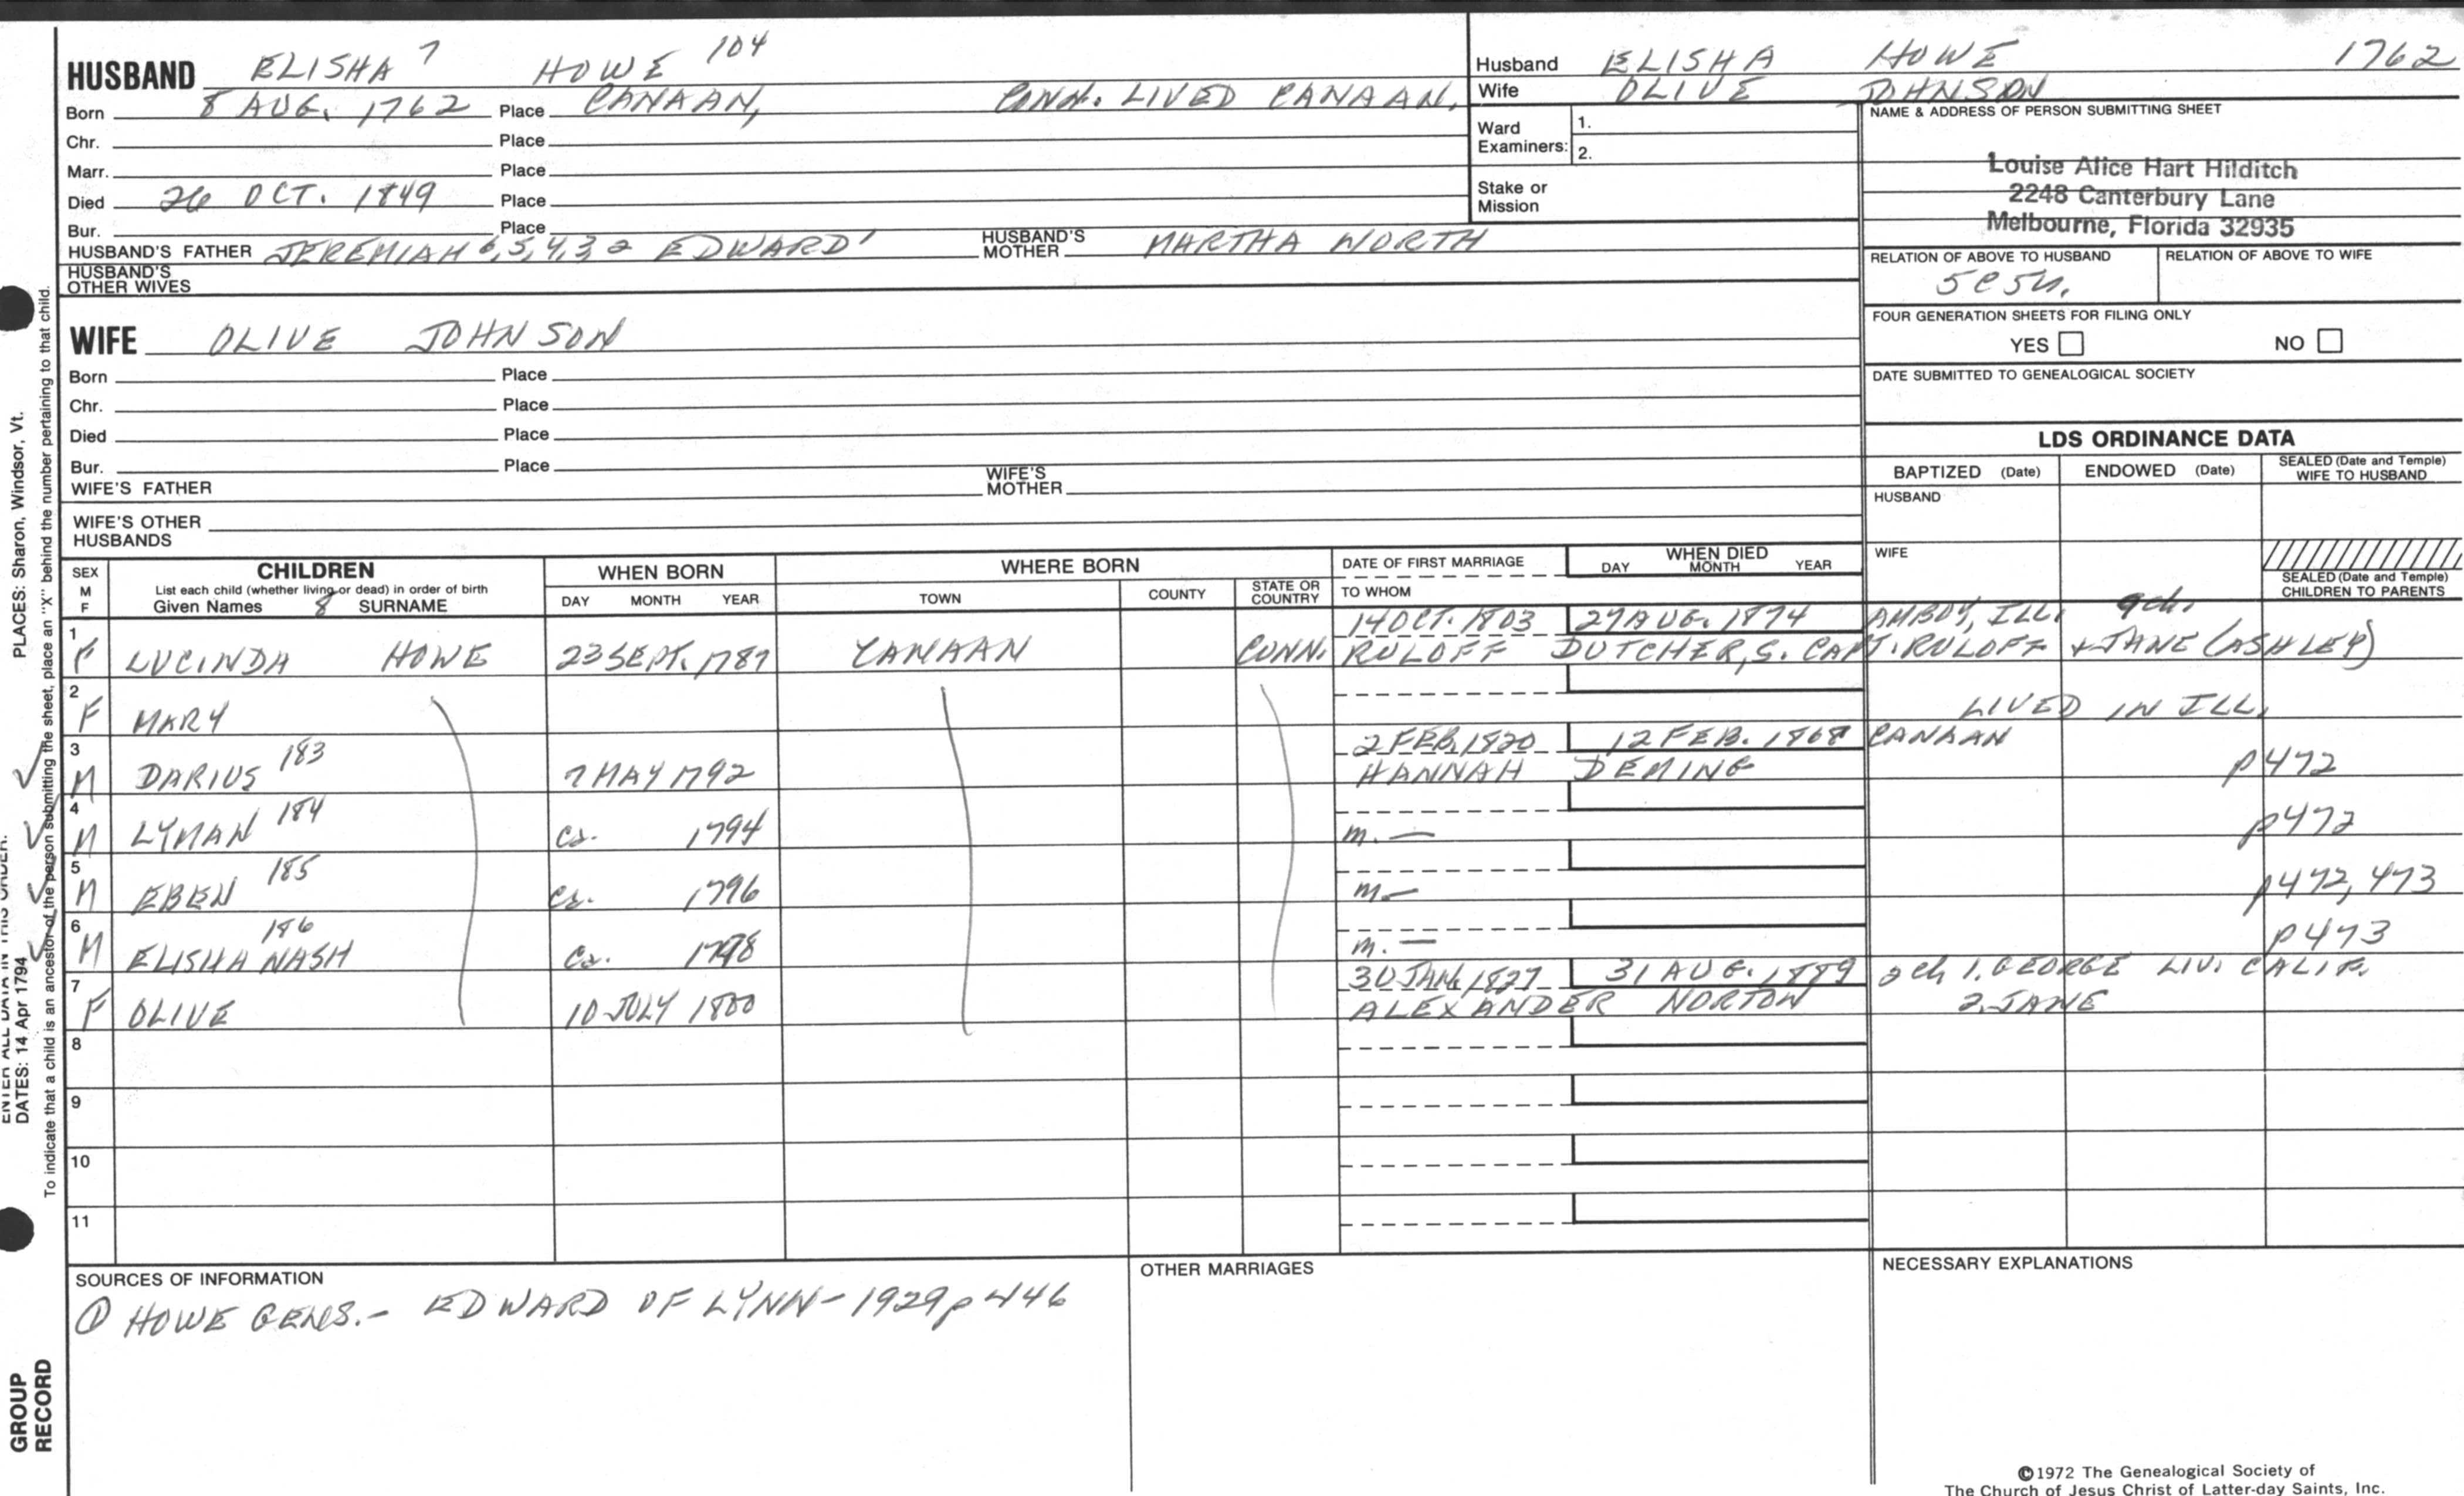 HUSBAND ELISHA 7 HOWE 104
Born 8 AUG. 1762 Place CANAAN, CONN. LIVED CANAAN.
Chr. Place
Marr. Place
Died 26 OCT. 1849 Place
Bur. Place
HUSBAND'S FATHER JEREMIAH 6,5,4,3,2 EDWARD 1 HUSBAND'S MOTHER MARTHA WORTH
HUSBAND'S OTHER WIVES
Husband ELISHA HOWE 1762
Wife OLIVE JOHNSON
Ward Examiners: 1.
2.
Stake or Mission
NAME & ADDRESS OF PERSON SUBMITTING SHEET
Louise Alice Hart Hilditch
2248 Canterbury Lane
Melbourne, Florida 32935
RELATION OF ABOVE TO HUSBAND RELATION OF ABOVE TO WIFE
5C5
FOUR GENERATION SHEETS FOR FILING ONLY
YES NO
DATE SUBMITTED TO GENEALOGICAL SOCIETY
WIFE OLIVE JOHNSON
Born Place
Chr. Place
Died Place
Bur. Place
WIFE'S FATHER WIFE'S MOTHER
WIFE'S OTHER HUSBANDS
LDS ORDINANCE DATA
BAPTIZED (Date) ENDOWED (Date) SEALED (Date and Temple) WIFE TO HUSBAND
HUSBAND
WIFE
SEALED (Date and Temple) CHILDREN TO PARENTS
SEX M F
CHILDREN
List each child (whether living or dead) in order of birth
Given Names 8 SURNAME
WHEN BORN
DAY MONTH YEAR
WHERE BORN
TOWN COUNTY STATE OR COUNTRY
DATE OF FIRST MARRIAGE
TO WHOM
WHEN DIED
DAY MONTH YEAR
1 14 OCT. 1803 27 AUG. 1874 AMBOY, ILL. 9 ch.
F LUCINDA HOWE 23 SEPT. 1787 CANAAN CONN. RULOFF DUTCHER, S. CAPT. RULOFF + JANE (ASHLEY)
2
F MARY LIVED IN ILL.
3 2 FEB. 1820 12 FEB. 1868 CANAAN
M DARIUS 183 7 MAY 1792 HANNAH DEMING p472
4
M LYMAN 184 Ca. 1794 m. — p472
5
M EBEN 185 Ca. 1796 m. — p472, 473
6
M ELISHA NASH 186 Ca. 1798 m. — p473
7 30 JAN. 1827 31 AUG. 1889 2 ch 1. GEORGE LIV. CALIF.
F OLIVE 10 JULY 1800 ALEXANDER NORTON 2. JANE
8
9
10
11
SOURCES OF INFORMATION
① HOWE GENS. - EDWARD OF LYNN - 1929 p 446
OTHER MARRIAGES
NECESSARY EXPLANATIONS
©1972 The Genealogical Society of
The Church of Jesus Christ of Latter-day Saints, Inc.
PLACES: Sharon, Windsor, Vt.
ENTER ALL DATA IN THIS ORDER:
DATES: 14 Apr 1794
To indicate that a child is an ancestor of the person submitting the sheet, place an "X" behind the number pertaining to that child.
GROUP
RECORD